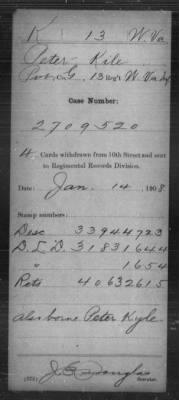 K 13 W. Va.
Peter Kile
13 Reg't W. Va. Inf
Case Number:
2709520
4 Cards withdrawn from 10th Street and sent
to Regimental Records Division.
Date: Jan. 14, 1908.
Stamp numbers:
Desc 33944723
31831644
" 1654
Rets 40632615
also borne Peter Kyle
J. Douglas